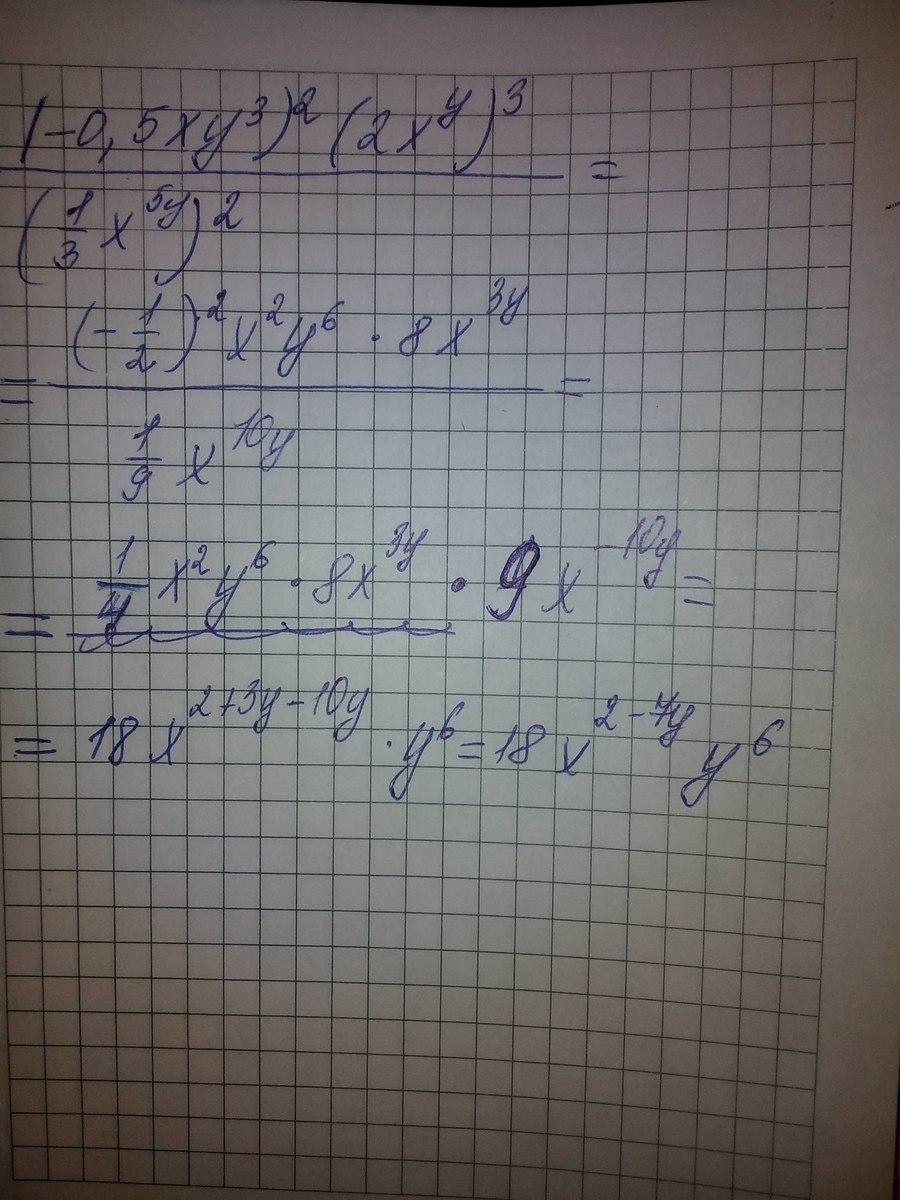 (-0,5xy³)² (2x^y)³ =
(1/3 x^5y)²
= (-1/2)² x² y⁶ · 8x^3y =
1/9 x^10y
= 1/4 x² y⁶ · 8x^3y · 9x^-10y =
= 18x^2+3y-10y · y⁶ = 18x^2-7y y⁶